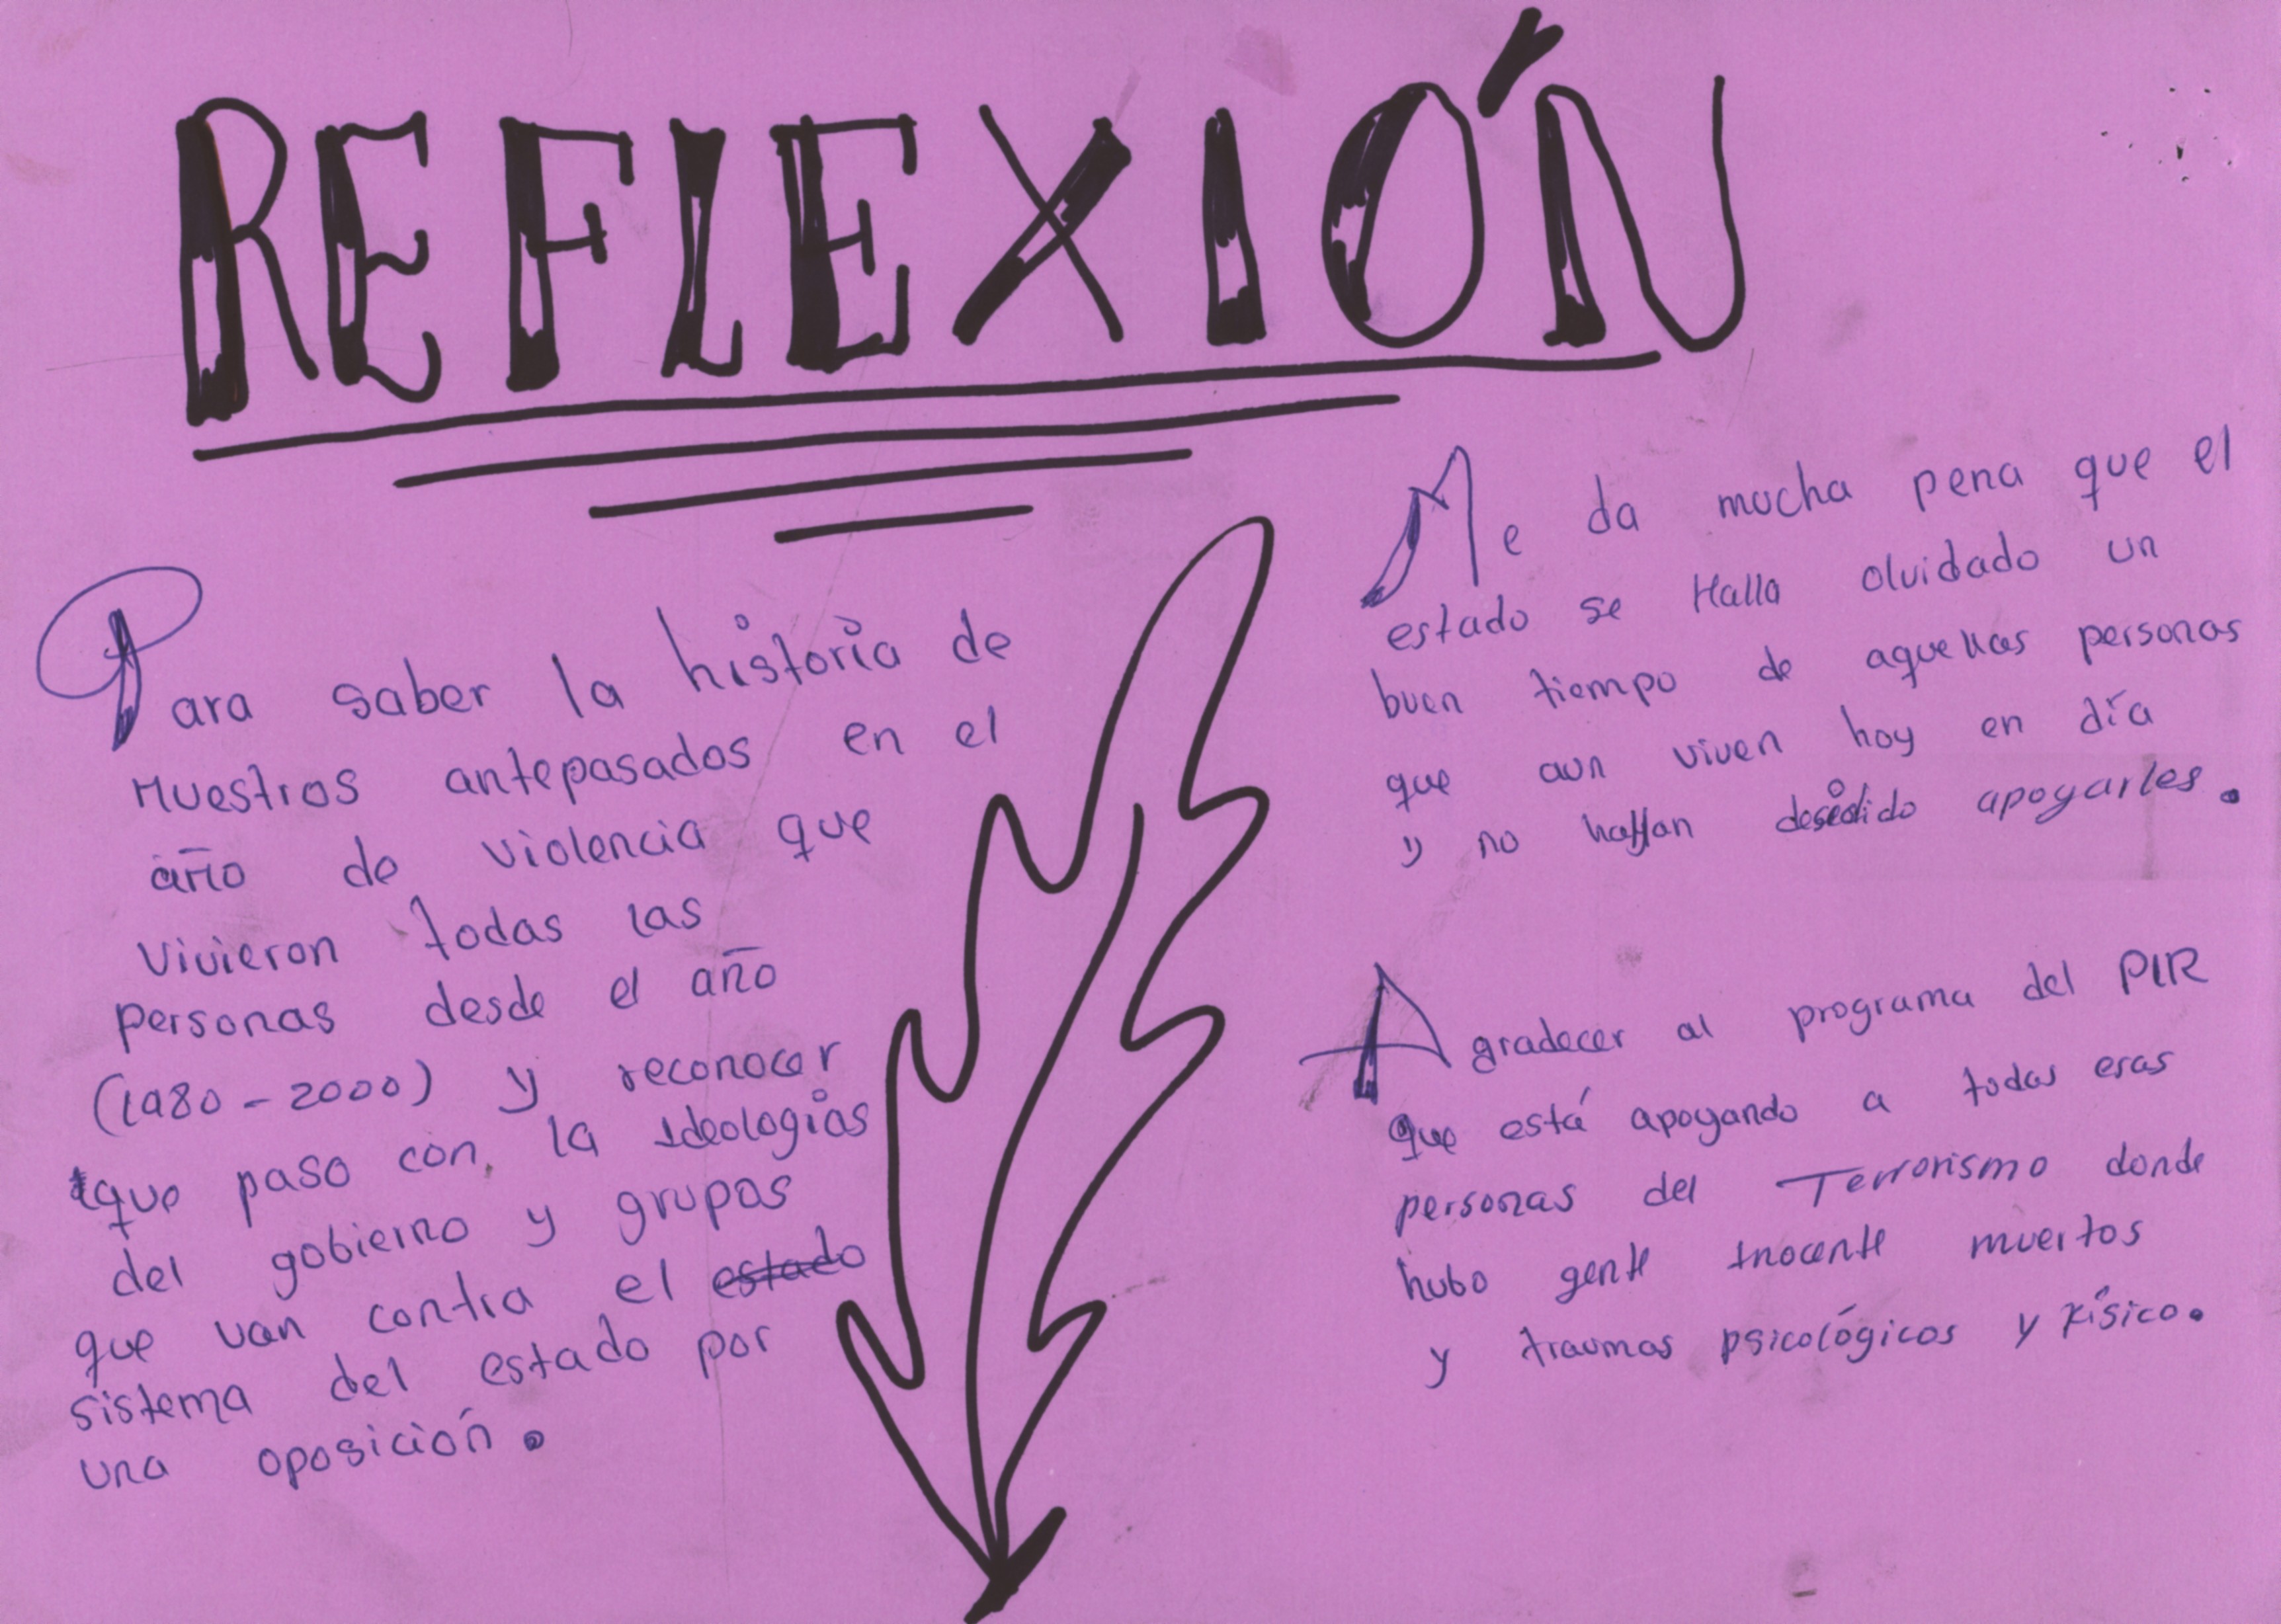 REFLEXIÓN
Para saber la historia de
Nuestros antepasados en el
año de violencia que
vivieron todas las
personas desde el año
(1980-2000) y reconocer
que paso con la Ideologias
del gobierno y grupos
que van contra el ~~estado~~
sistema del estado por
una oposición.
Me da mucha pena que el
estado se Halla olvidado un
buen tiempo de aquellas personas
que aun viven hoy en día
y no hallan desidido apoyarles.
Agradecer al programa del PIR
que está apoyando a todas esas
personas del Terrorismo donde
hubo gente Inocente muertos
y traumas psicológicos y físico.